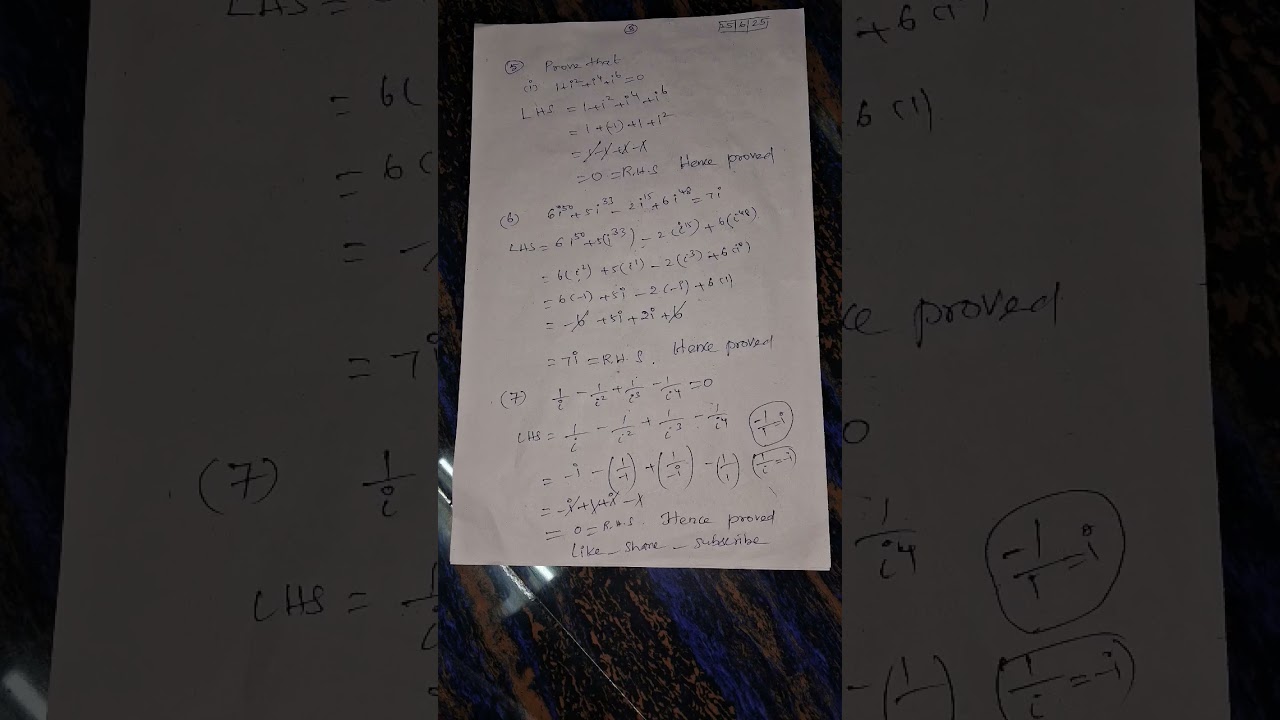 8
25/6/25
(5) Prove that
(i) 1+i²+i⁴+i⁶=0
LHS = 1+i²+i⁴+i⁶
= 1+(-1)+1+i²
= 1-1+1-1
= 0 = R.H.S Hence proved
(6) 6i⁵⁰+5i³³-2i¹⁵+6i⁴⁸=7i
LHS = 6i⁵⁰+5(i³³)-2(i¹⁵)+6(i⁴⁸)
= 6(i²)+5(i¹)-2(i³)+6(i⁰)
= 6(-1)+5i-2(-i)+6(1)
= -6+5i+2i+6
= 7i = R.H.S. Hence proved
(7) 1/i - 1/i² + 1/i³ - 1/i⁴ = 0
LHS = 1/i - 1/i² + 1/i³ - 1/i⁴ -1/i=i
= -i - (1/-1) + (1/-i) - (1/1) 1/i=-i
= -i+1+i-1
= 0 = R.H.S. Hence proved
Like - share - subscribe